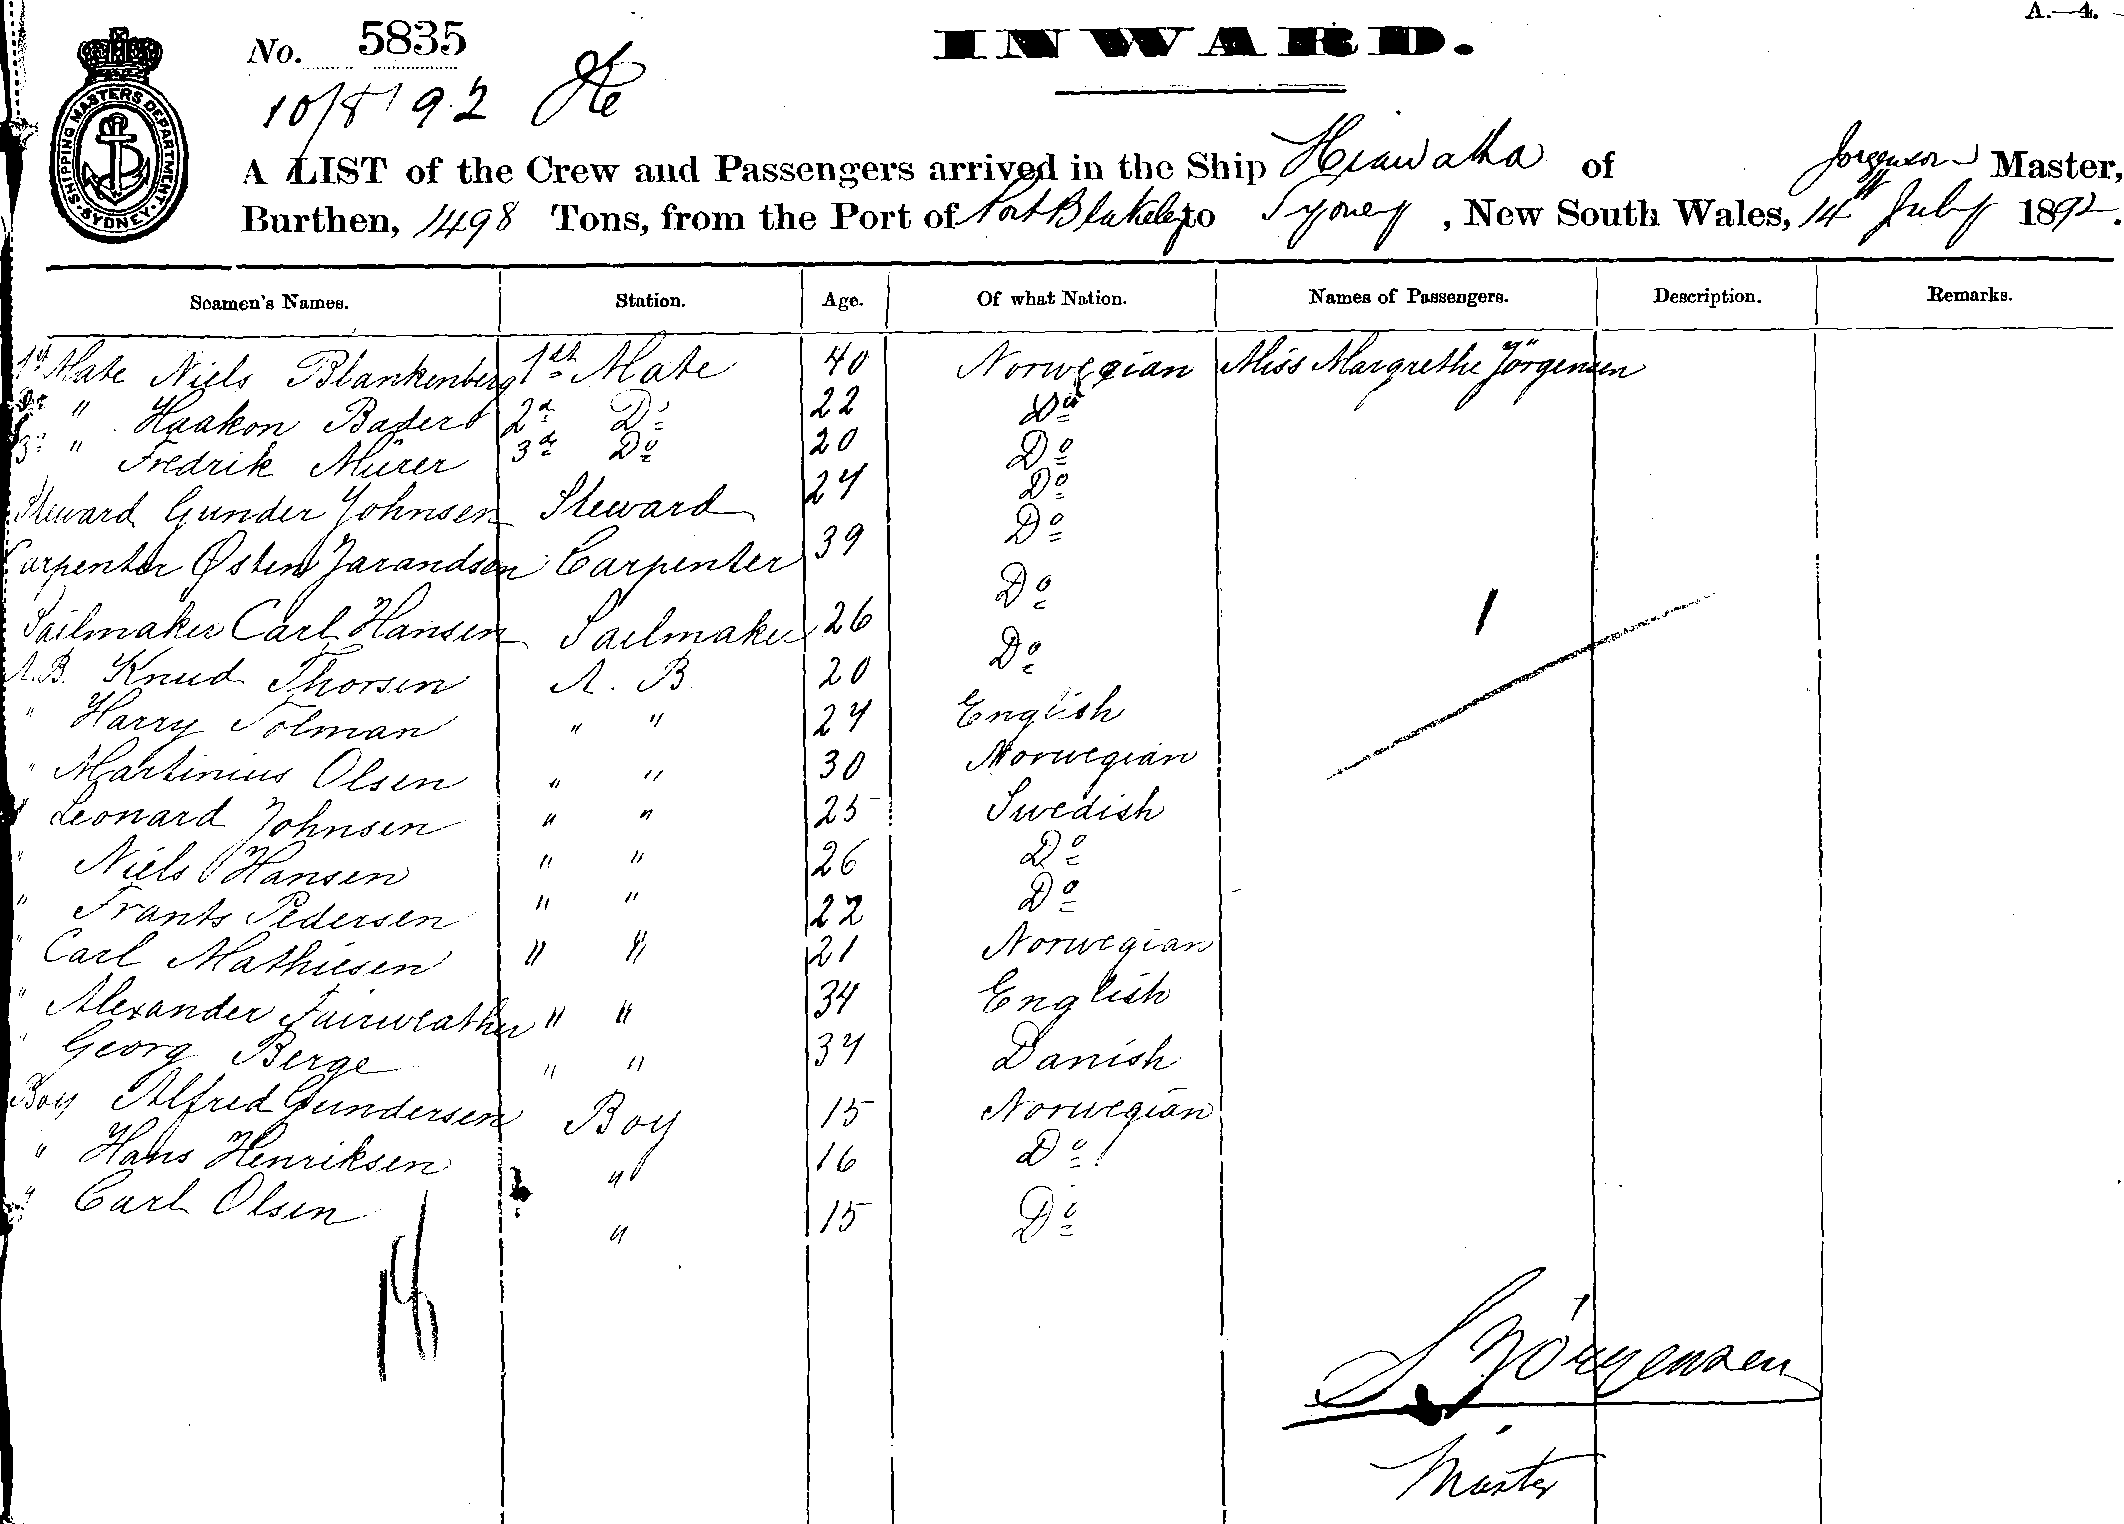 A.—4.
No. 5835
INWARD.
10/8/92 He
SHIPPING MASTERS DEPARTMENT SYDNEY
A LIST of the Crew and Passengers arrived in the Ship Hiawatha of Jorgenson Master,
Burthen, 1498 Tons, from the Port of Port Blakeley to Sydney, New South Wales, 14th July 1892.
Seamen's Names. Station. Age. Of what Nation. Names of Passengers. Description. Remarks.
1st Mate Niels Blankenberg 1st Mate 40 Norwegian Miss Margrethe Jörgensen
2d " Haakon Baders 2d Do 22 Do
3d " Fredrik Mürer 3d Do 20 Do
Steward Gunder Johnsen Steward 24 Do
Carpenter Østen Jarandsen Carpenter 39 Do
Sailmaker Carl Hansen Sailmaker 26 Do
A.B. Knud Thorsen A. B. 20 Do
" Harry Tolman " " 24 English
" Martinius Olsen " " 30 Norwegian
" Leonard Johnsen " " 25 Swedish
" Niels Hansen " " 26 Do
" Frants Pedersen " " 22 Do
" Carl Mathiesen " " 21 Norwegian
" Alexander Fairweather " " 34 English
" Georg Berge " " 34 Danish
Boy Alfred Gundersen Boy 15 Norwegian
" Hans Henriksen " 16 Do
" Carl Olsen " 15 Do
1
18
S Jörgensen
Master